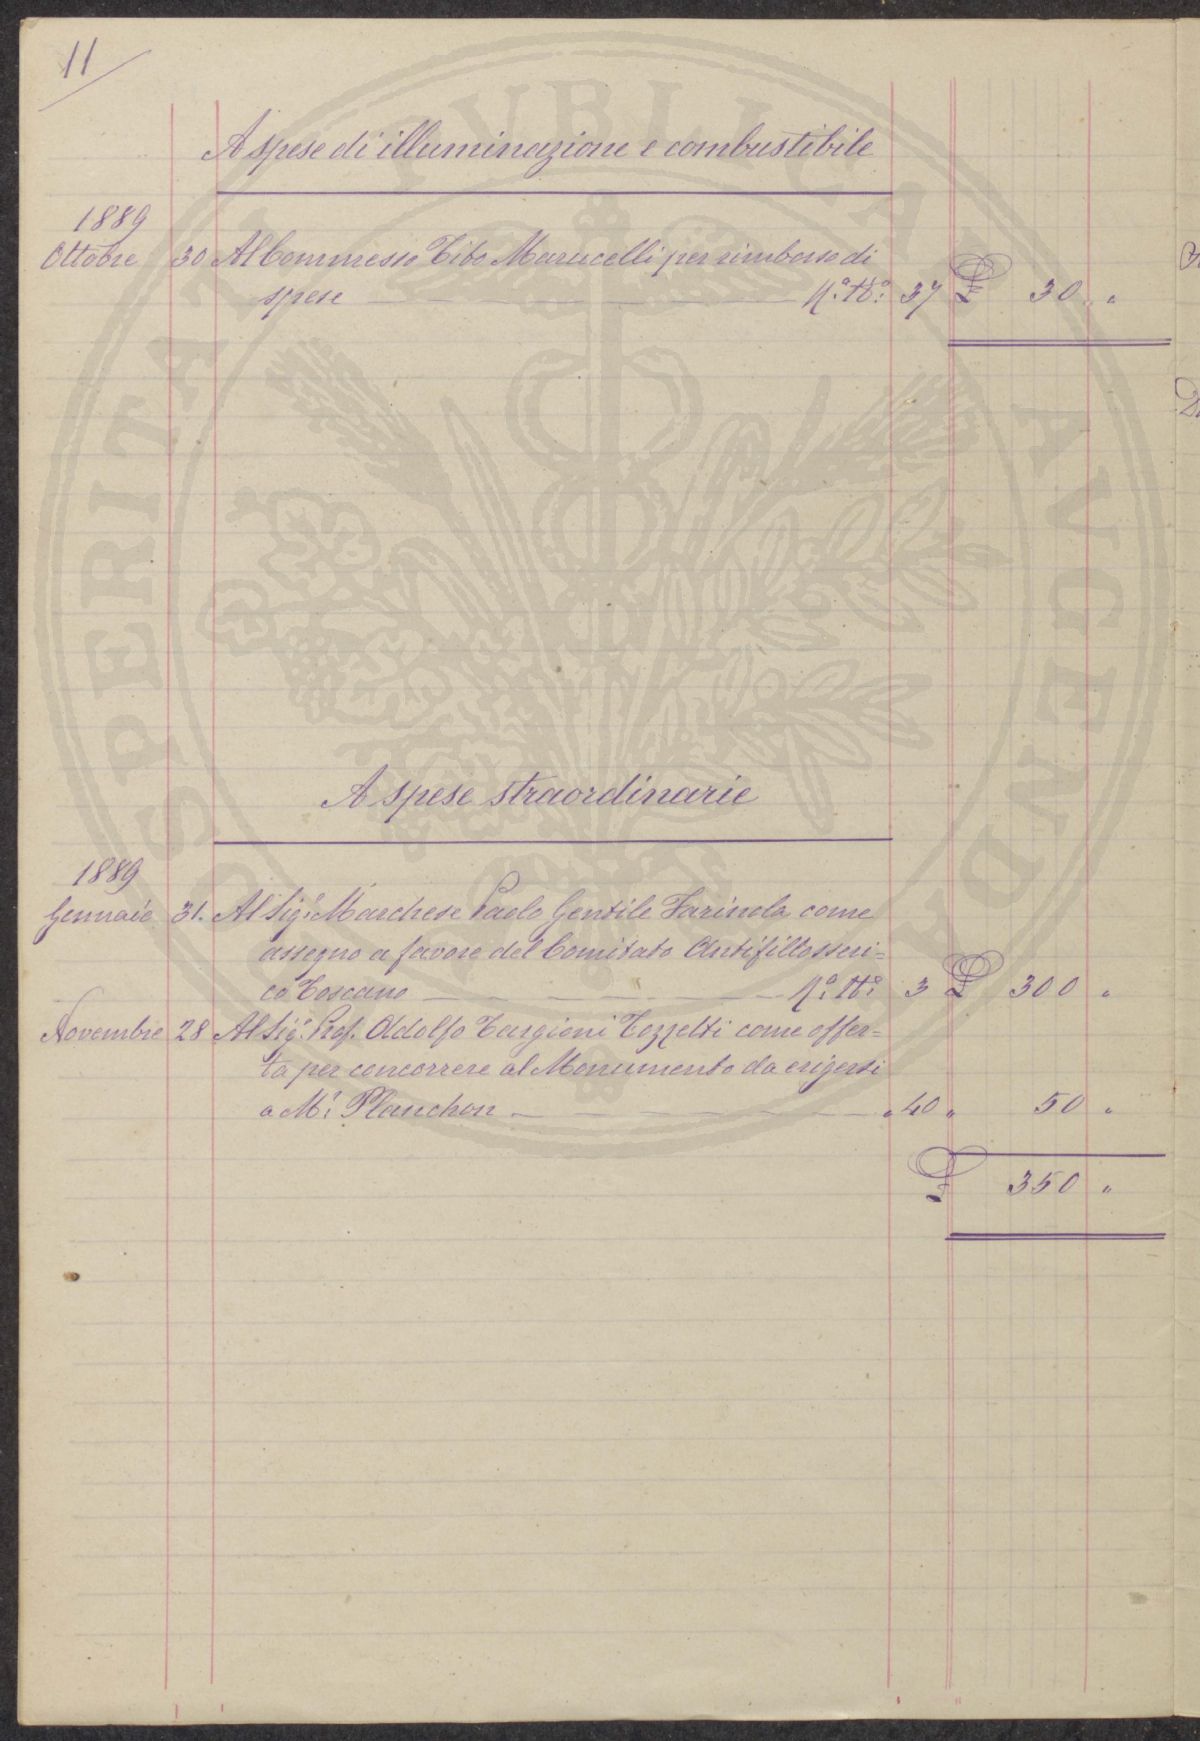 11
A spese di illuminazione e combustibile
1889
Ottobre 30 Al Commesso Tito Marucelli per rimborso di
spese N.º M.º 37 £ 30 "
A spese straordinarie
1889
Gennaio 31. Al Sig.r Marchese Paolo Gentile Farinola come
assegno a favore del Comitato Antifillosseri=
co Toscano N.º M.º 3 £ 300 "
Novembre 28 Al Sig.r Prof. Adolfo Targioni Tozzetti come offer=
ta per concorrere al Monumento da erigersi
a M.r Planchon " 40 " 50 "
£ 350 "